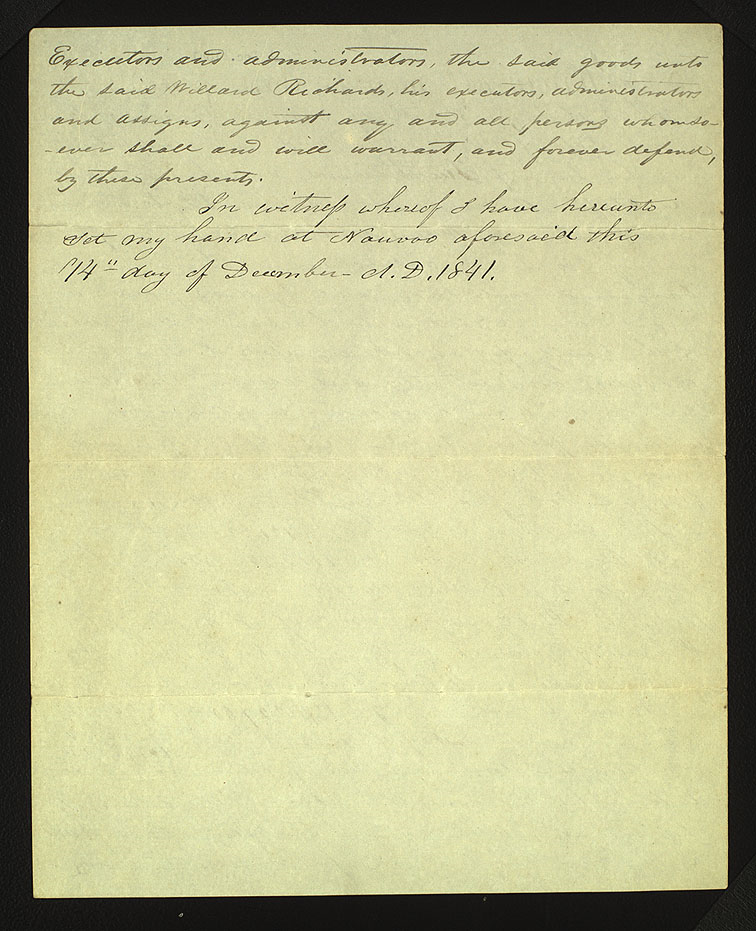 Executors and administrators, the said goods unto
the said Willard Richards, his executors, administrators
and assigns, against any and all persons whomso-
-ever shall and will warrant, and forever defend,
by these presents.
In witneſs whereof I have hereunto
set my hand at Nauvoo aforesaid this
14" day of December – A.D. 1841.